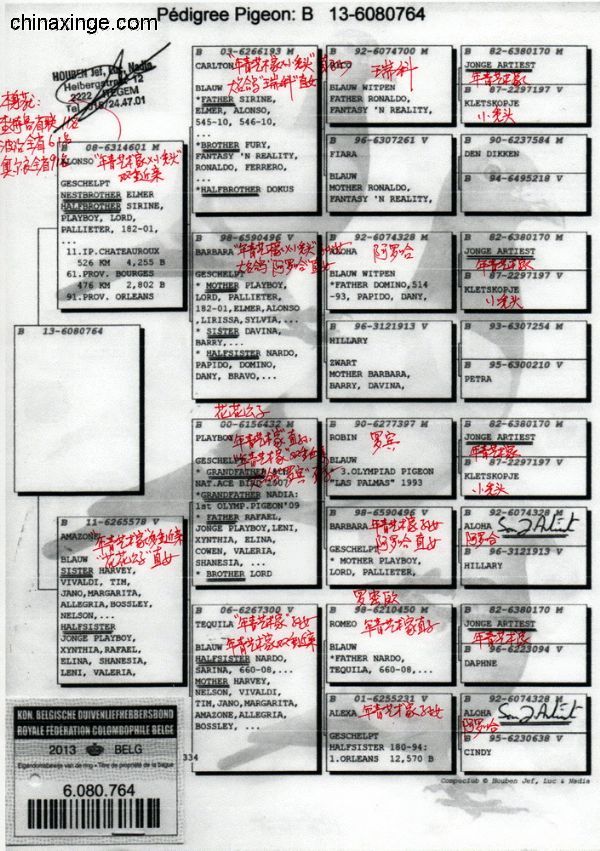 chinaxinge.com
Pédigree Pigeon: B 13-6080764
HOUBEN Jef, Luc, Nadia
Heibergstraat 12
2222 ITEGEM
B 08-6314601 M
ALONSO
GESCHELPT
NESTBROTHER ELMER
HALFBROTHER SIRINE,
PLAYBOY, LORD,
PALLIETER, 182-01,
...
11.IP.CHATEAUROUX
526 KM 4,255 B
61.PROV. BOURGES
476 KM 2,802 B
91.PROV. ORLEANS
B 13-6080764
B 11-6265578 V
AMAZONE
BLAUW
SISTER HARVEY,
VIVALDI, TIM,
JANO,MARGARITA,
ALLEGRIA,BOSSLEY,
NELSON,...
HALFSISTER
JONGE PLAYBOY,
XYNTHIA,RAFAEL,
ELINA, SHANESIA,
LENI, VALERIA
B 03-6266193 M
CARLTON
BLAUW
*FATHER SIRINE,
ELMER, ALONSO,
545-10, 546-10,
...
*BROTHER FURY,
FANTASY 'N REALITY,
RONALDO, FERRERO,
...
*HALFBROTHER DOKUS
B 98-6590496 V
BARBARA
GESCHELPT
* MOTHER PLAYBOY,
LORD, PALLIETER,
182-01,ELMER,ALONSO
,LIRISSA,SYLVIA,...
* SISTER DAVINA,
BARRY,...
* HALFSISTER NARDO,
PAPIDO, DOMINO,
DANY, BRAVO,...
花花公子
B 00-6156432 M
PLAYBOY
* GRANDFATHER
NAT.ACE
*GRANDFATHER NADIA:
1st OLYMP.PIGEON'09
* FATHER RAFAEL,
JONGE PLAYBOY,LENI,
XYNTHIA, ELINA,
COWEN, VALERIA,
SHANESIA, ...
* BROTHER LORD
B 06-6267300 V
TEQUILA
BLAUW
HALFSISTER NARDO,
SARINA, 660-08,...
MOTHER HARVEY,
NELSON, VIVALDI,
TIM,JANO,MARGARITA,
AMAZONE,ALLEGRIA,
BOSSLEY, ...
B 92-6074700 M
瑞科
BLAUW WITPEN
FATHER RONALDO,
FANTASY 'N REALITY,
B 96-6307261 V
FIARA
BLAUW
MOTHER RONALDO,
FANTASY 'N REALITY,
B 92-6074328 M
阿罗哈
BLAUW WITPEN
*FATHER DOMINO,514
-93, PAPIDO, DANY,
B 96-3121913 V
HILLARY
ZWART
MOTHER BARBARA,
BARRY, DAVINA,
B 90-6277397 M
ROBIN 罗宾
BLAUW
3.OLYMPIAD PIGEON
"LAS PALMAS" 1993
B 98-6590496 V
BARBARA
GESCHELPT
* MOTHER PLAYBOY,
LORD, PALLIETER,
罗密欧
B 98-6210450 M
ROMEO
BLAUW
*FATHER NARDO,
TEQUILA, 660-08,...
B 01-6255231 V
ALEXA
GESCHELPT
HALFSISTER 180-94:
1.ORLEANS 12,570 B
B 82-6380170 M
JONGE ARTIEST
年青艺术家
B 87-2297197 V
KLETSKOPJE
小秃头
B 90-6237584 M
DEN DIKKEN
B 94-6495218 V
B 82-6380170 M
JONGE ARTIEST
年青艺术家
B 87-2297197 V
KLETSKOPJE
小秃头
B 93-6307254 M
B 95-6300210 V
PETRA
B 82-6380170 M
JONGE ARTIEST
年青艺术家
B 87-2297197 V
KLETSKOPJE
小秃头
B 92-6074328 M
ALOHA
阿罗哈
B 96-3121913 V
HILLARY
B 82-6380170 M
JONGE ARTIEST
年青艺术家
B 96-6223094 V
DAPHNE
B 92-6074328 M
ALOHA
阿罗哈
B 95-6230638 V
CINDY
334
Compuclub © Houben Jef, Luc & Nadia
KON. BELGISCHE DUIVENLIEFHEBBERSBOND
ROYALE FEDERATION COLOMBOPHILE BELGE
2013 BELG
Eigendomsbewijs van de ring - Titre de propriété de la bague
6.080.764